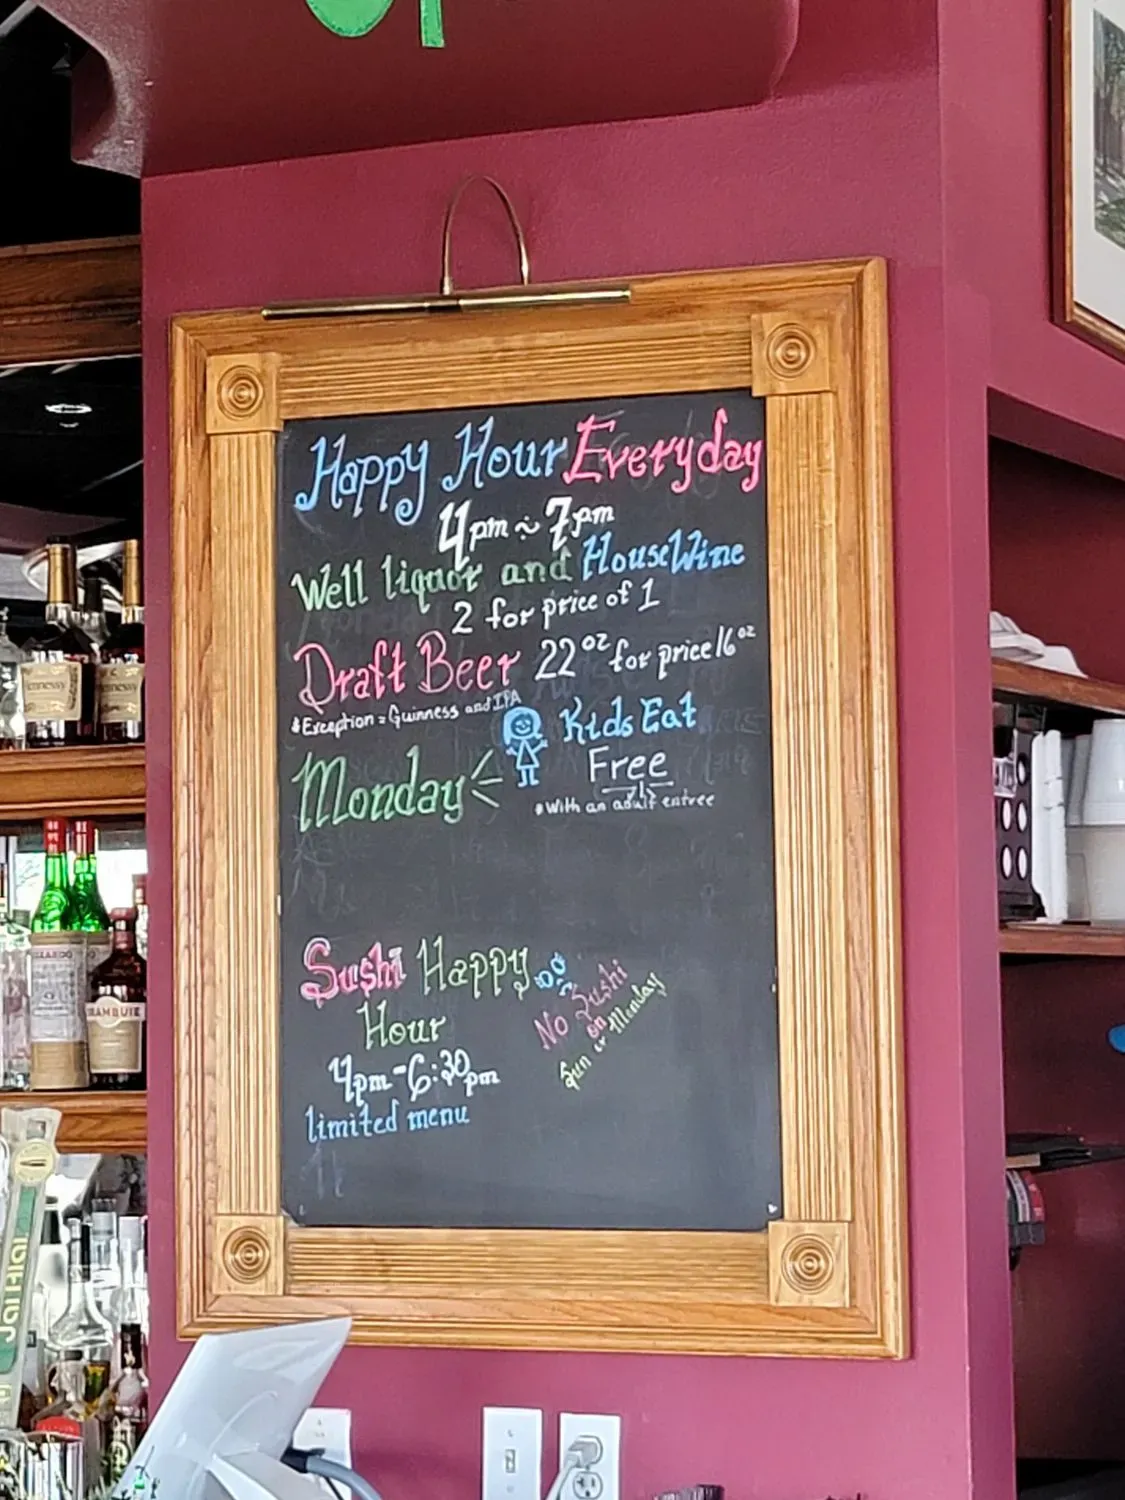 Happy Hour Everyday
4pm ~ 7pm
Well liquor and House Wine
2 for price of 1
Draft Beer 22oz for price 16oz
*Exception = Guinness and IPA
Monday
Kids Eat
Free
*With an adult entree
Sushi Happy
Hour
4pm-6:30pm
limited menu
No Sushi
on
Sun or Monday
Hennessy
Hennessy
DRAMBUIE